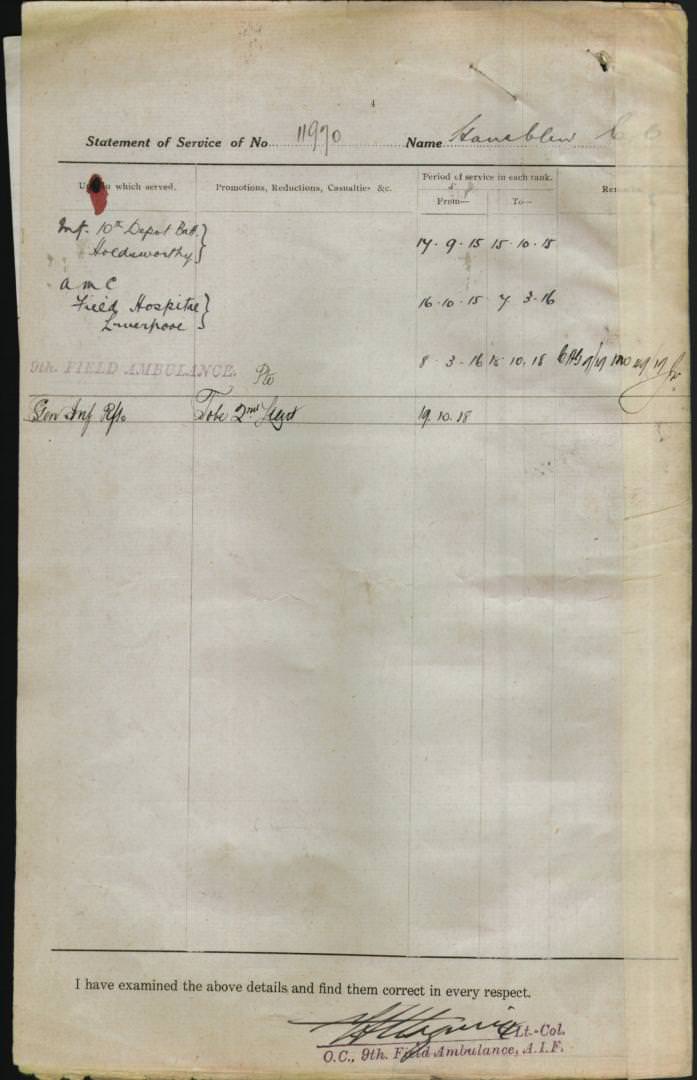 4
Statement of Service of No. 11970 Name
which served. Promotions, Reductions, Casualties &c. Period of service in each rank.
From— To—
Inf. 10th Depot Batt. }
Holdsworthy } 17 · 9 · 15 15 · 10 · 15
A M C
Field Hospital } 16 · 10 · 15 7 3 · 16
Liverpool }
9th. FIELD AMBULANCE. Pte 8 · 3 · 16 18
Gen Inf Rfts To be 2nd Lieut 19. 10. 18
I have examined the above details and find them correct in every respect.
Lt.-Col.
O.C., 9th. Field Ambulance, A.I.F.